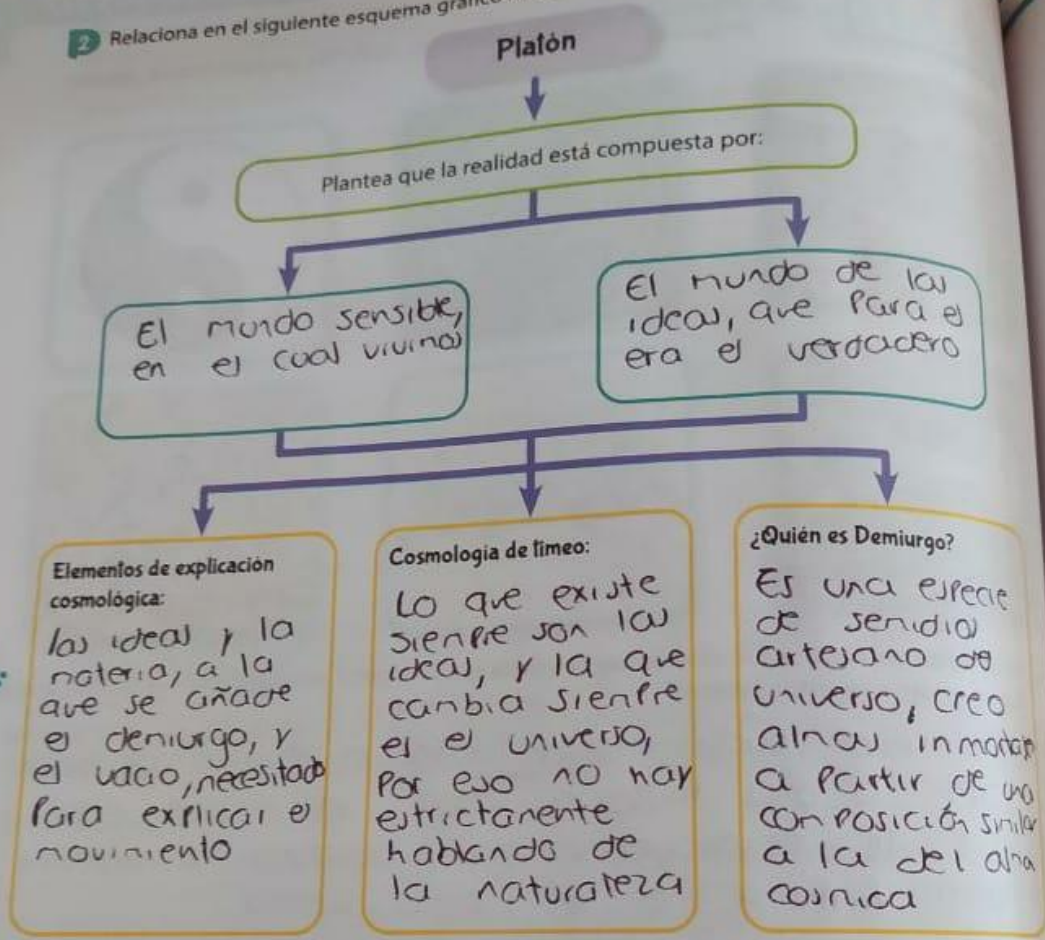 2 Relaciona en el siguiente esquema
Platón
Plantea que la realidad está compuesta por:
El mundo sensible,
en el cual vivimos
El mundo de las
ideas, que Para el
era el verdadero
Elementos de explicación
cosmológica:
las ideas y la
materia, a la
que se añade
el demiurgo, y
el vacio, necesitado
Para explicar el
movimiento
Cosmología de timeo:
Lo que existe
siempre son las
ideas, y la que
cambia siempre
es el universo,
Por eso no hay
estrictamente
hablando de
la naturaleza
¿Quién es Demiurgo?
Es una especie
de semidios
artesano de
universo, creo
almas inmortales
a Partir de una
composición similar
a la del alma
cosmica